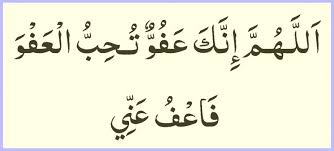 اَللَّهُمَّ إِنَّكَ عَفُوٌّ تُحِبُّ الْعَفْوَ
فَاعْفُ عَنِّي